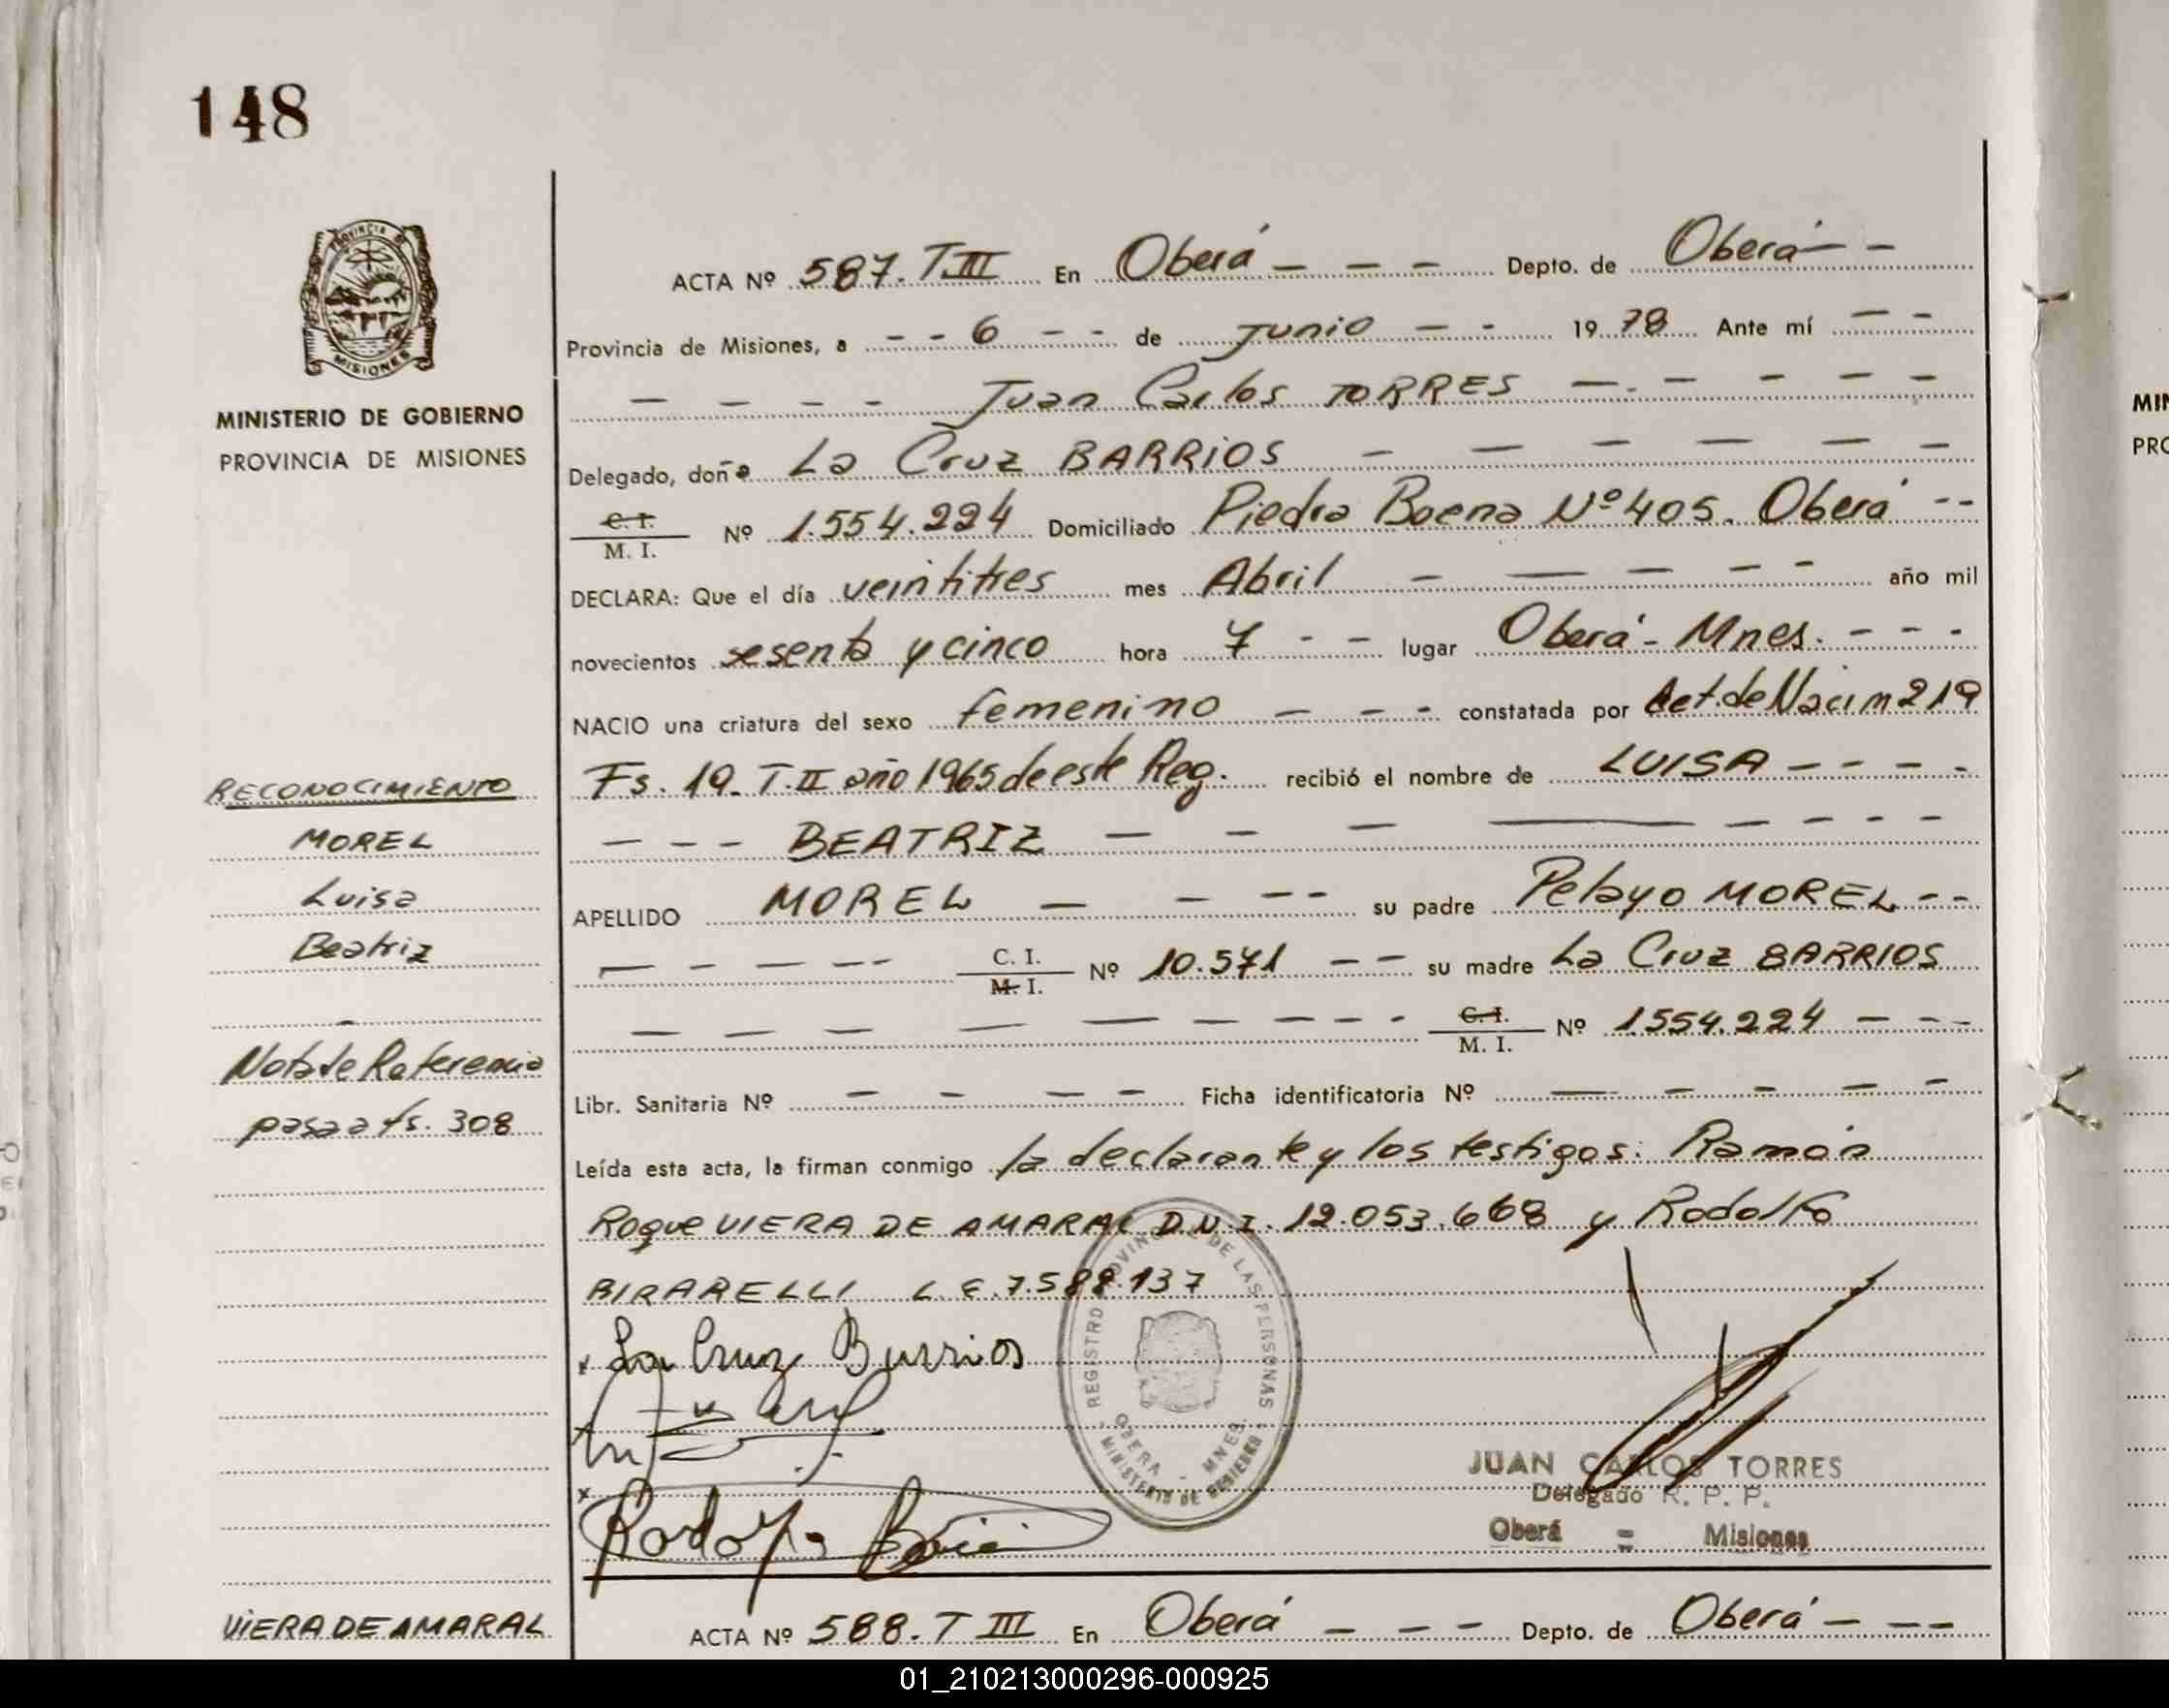 148
PROVINCIA DE
MISIONES
MINISTERIO DE GOBIERNO
PROVINCIA DE MISIONES
ACTA Nº 587. T III En Oberá - - - Depto. de Oberá - -
Provincia de Misiones, a - - 6 - - de Junio - - 1978 Ante mí - -
- - - - Juan Carlos TORRES - . - - - - -
Delegado, doña La Cruz BARRIOS - - - - - -
C. I.
M. I. Nº 1.554.224 Domiciliado Piedra Buena Nº 405. Oberá - -
DECLARA: Que el día veintitres mes Abril - - - - - año mil
novecientos sesenta y cinco hora 7 - - lugar Oberá - Mnes. - - -
NACIO una criatura del sexo femenino - - - constatada por Act. de Nacim 219
Fs. 19. T. II año 1965 de este Reg. recibió el nombre de LUISA - - - -
- - - BEATRIZ - - - - - - - -
APELLIDO MOREL - - - - su padre Pelayo MOREL - -
- - - - - C. I.
M. I. Nº 10.571 - - su madre La Cruz BARRIOS
- - - - - - - - - C. I.
M. I. Nº 1554.224 - - -
Libr. Sanitaria Nº - - - - Ficha identificatoria Nº - - - - -
Leída esta acta, la firman conmigo la declarante y los testigos: Ramón
Roque VIERA DE AMARAL D.N.I. 12.053.668 y Rodolfo
BIRARELLI L.E. 7.588.137
x La Cruz Burrios
x
x Rodolfo
REGISTRO PROVINCIAL DE LAS PERSONAS
OBERA - MNES.
MINISTERIO DE GOBIERNO
JUAN CARLOS TORRES
Delegado R. P. P.
Oberá = Misiones
RECONOCIMIENTO
MOREL
Luisa
Beatriz
-
Nota de Referencia
pasa a fs. 308
VIERA DE AMARAL
ACTA Nº 588. T III En Oberá - - - Depto. de Oberá - - -
MIN
PRO
01_210213000296-000925